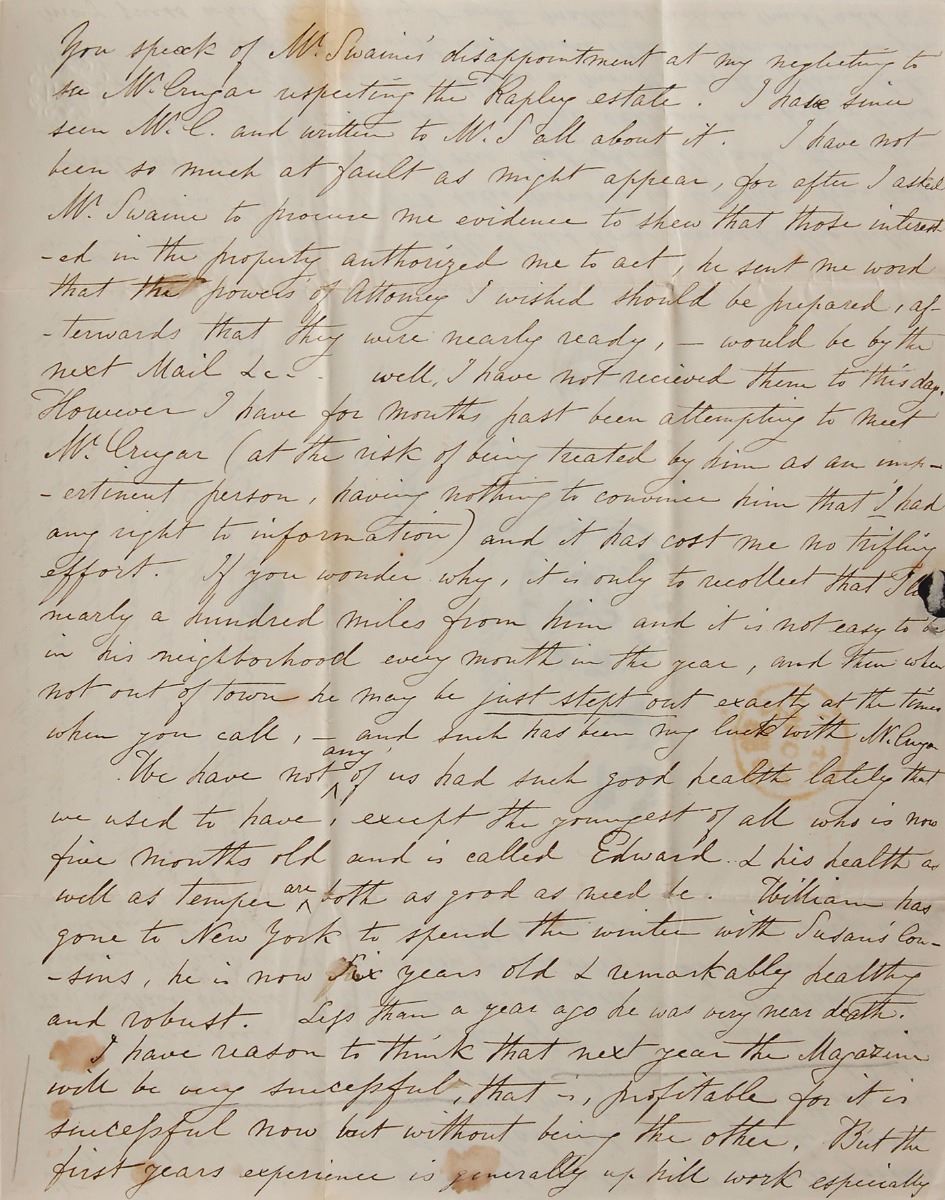 You speak of Mr. Swaine's disappointment at my neglecting to
see Mr. Crugar respecting the Rapley estate. I have since
seen Mr. C. and written to Mr. S all about it. I have not
been so much at fault as might appear, for after I asked
Mr. Swaine to procure me evidence to shew that those interest
-ed in the property authorized me to act, he sent me word
that the powers of Attorney I wished should be prepared, af-
-terwards that they were nearly ready, — would be by the
next Mail &c - well, I have not recieved them to this day.
However I have for months past been attempting to meet
Mr. Crugar (at the risk of being treated by him as an imp-
-ertinent person, having nothing to convince him that I had
any right to information) and it has cost me no trifling
effort. If you wonder why, it is only to recollect that I
nearly a hundred miles from him and it is not easy to be
in his neighborhood every month in the year, and then when
not out of town he may be just stept out exactly at the times
when you call, — and such has been my luck with Mr. Crugar
We have not any of us had such good health lately that
we used to have, except the youngest of all who is now
five months old and is called Edward. & his health as
well as temper are both as good as need be. William has
gone to New York to spend the winter with Susan's Cou-
-sins, he is now Six years old & remarkably healthy
and robust. Less than a year ago he was very near death.
I have reason to think that next year the Magazine
will be very successful, that is, profitable for it is
successful now but without being the other. But the
first years experience is generally up hill work especially